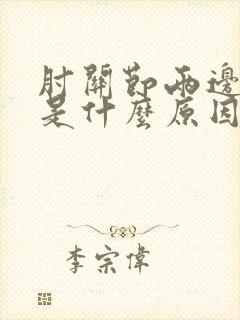 肘關節兩邊
是什麼原因
李宗偉